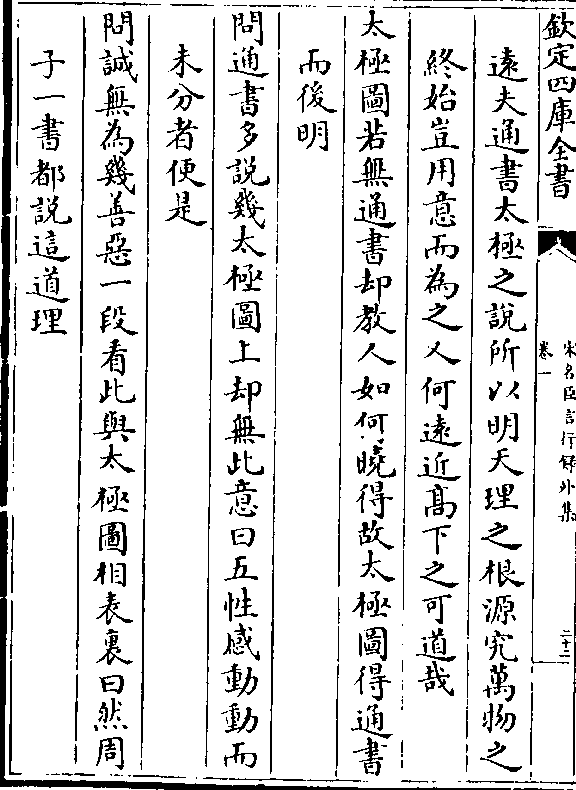 欽定四庫全書
宋名臣言行錄外集
卷一
二十二
遠夫通書太極之說所以明天理之根源究萬物之
終始豈用意而為之又何遠近髙下之可道哉
太極圖若無通書却教人如何曉得故太極圖得通書
而後明
問通書多說幾太極圖上却無此意曰五性感動動而
未分者便是
問誠無為幾善惡一段看此與太極圖相表裏曰然周
子一書都說這道理